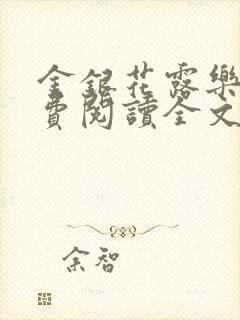 金銀花露樂
費閱讀全文
余智